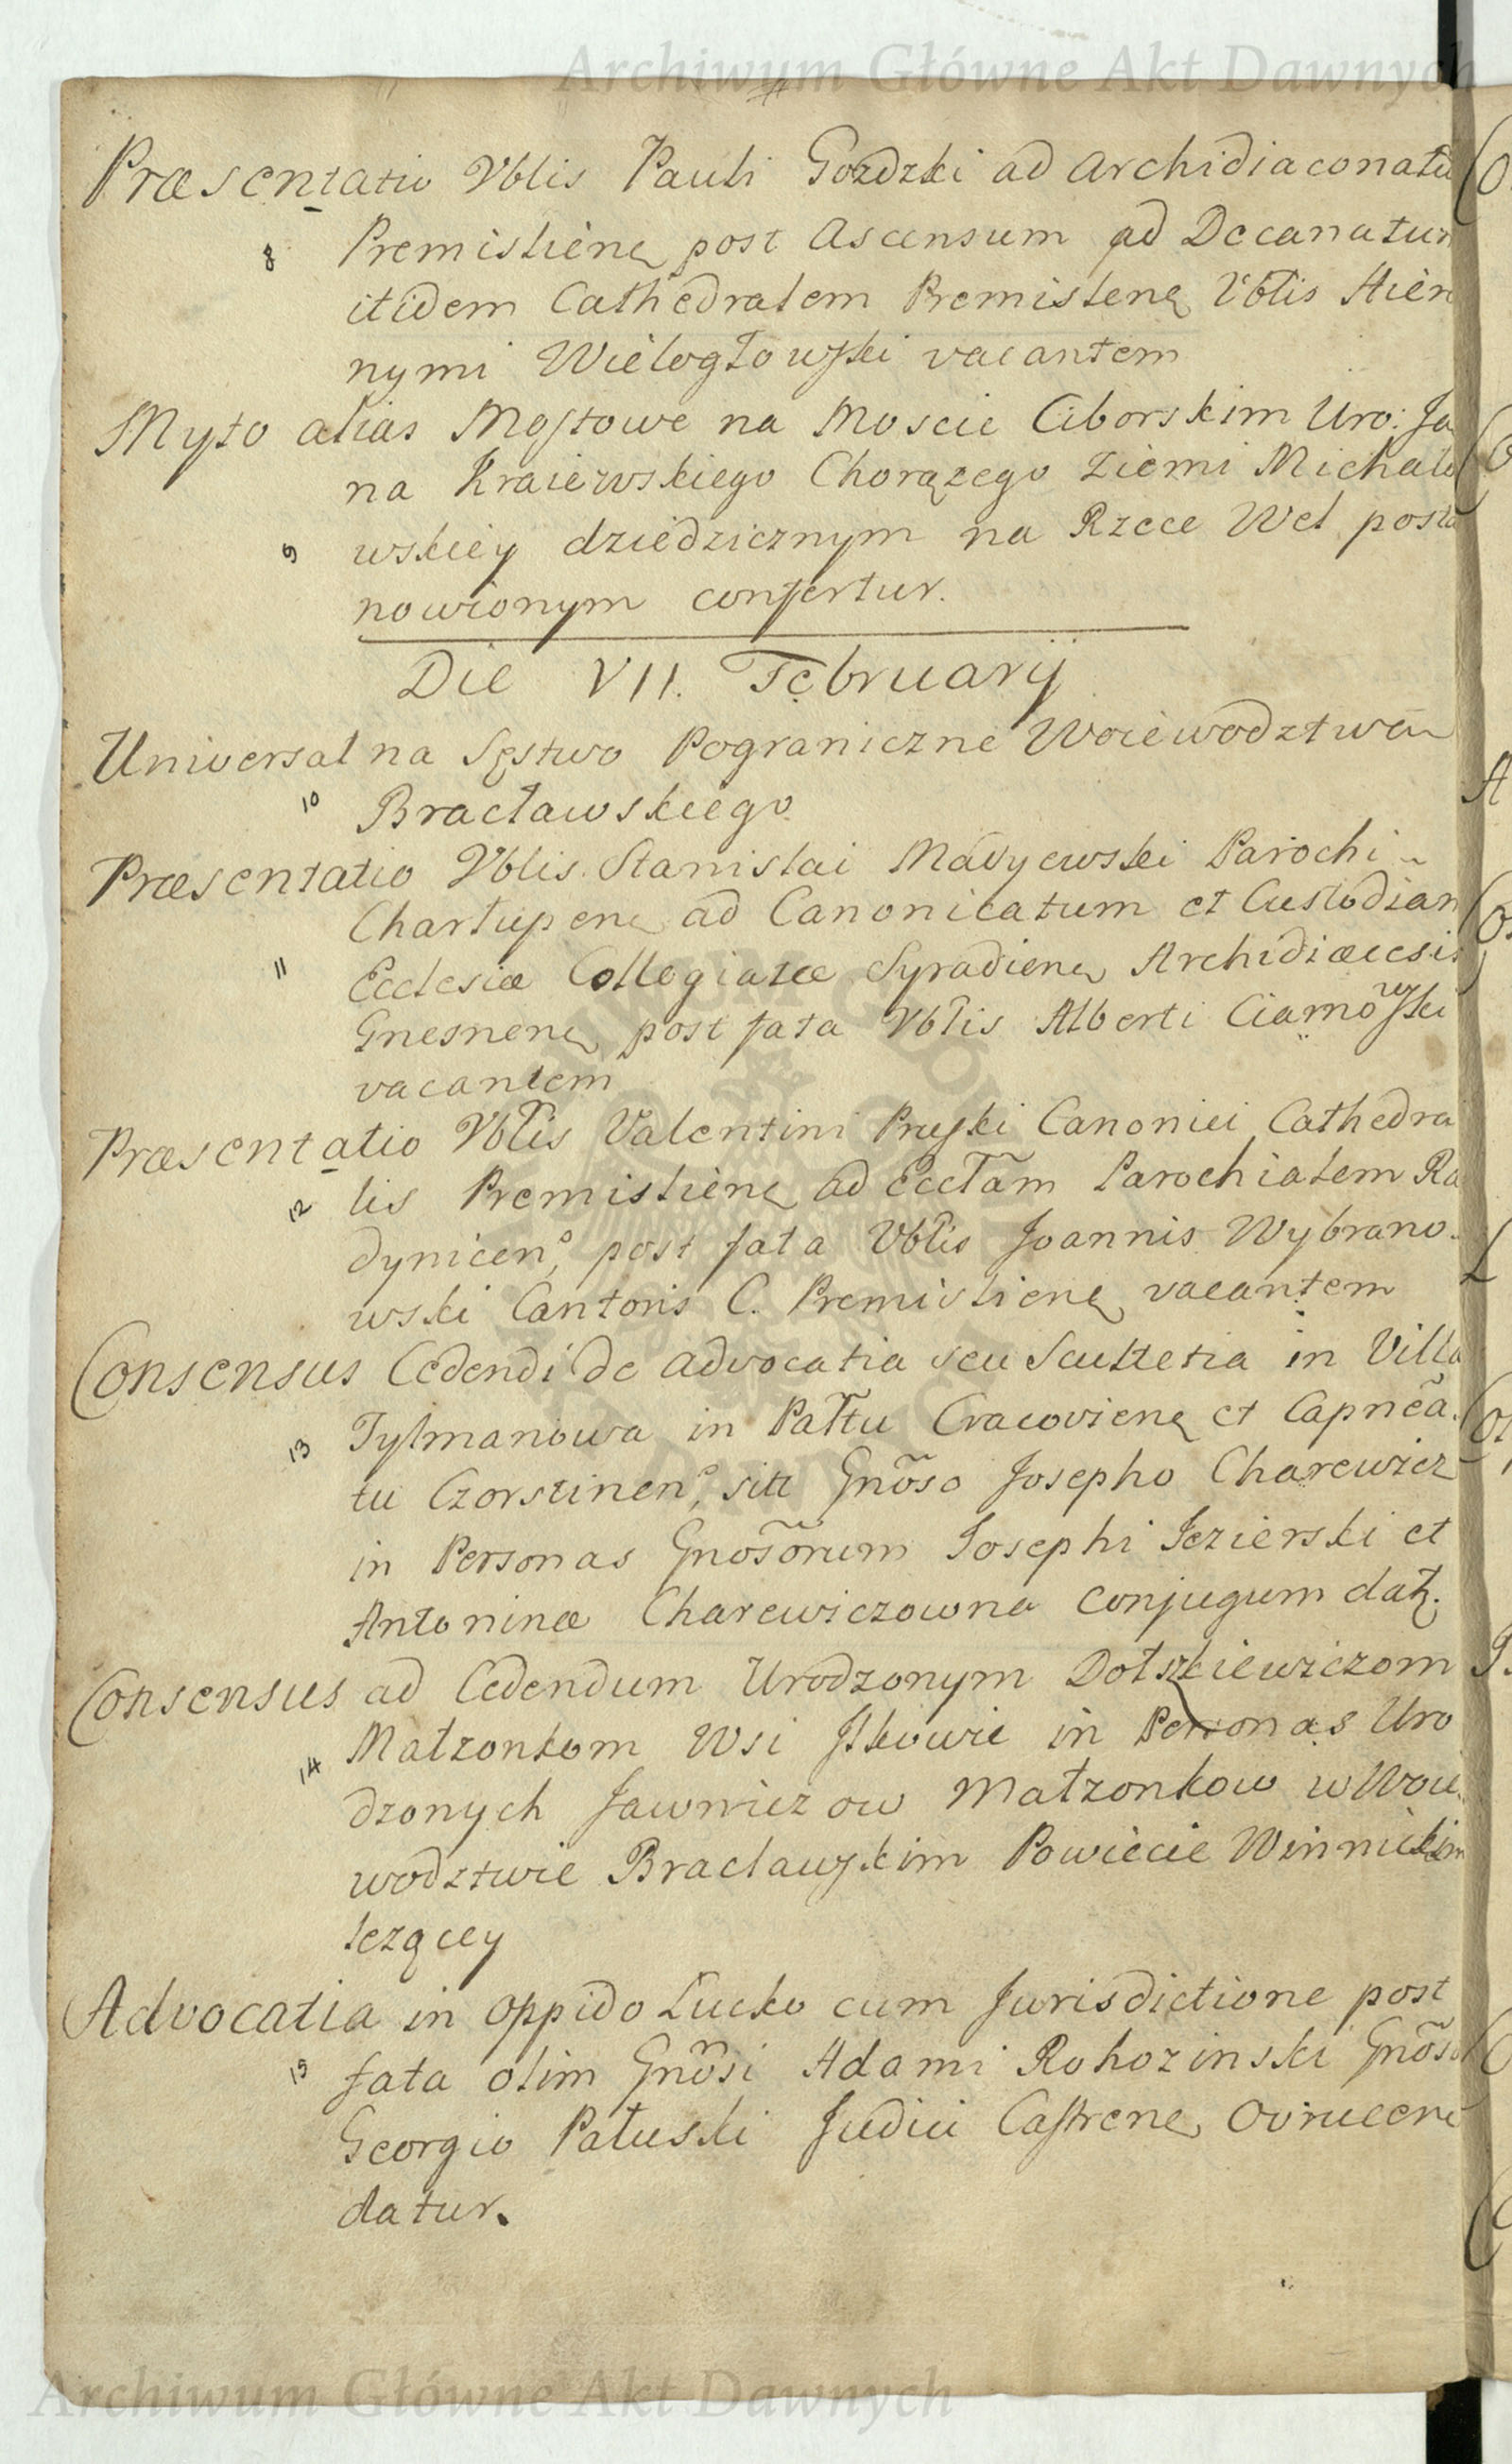 Archiwum Główne Akt Dawnych
Præsentatio Vblis Pauli Gozdzki ad Archidiaconatū
8 Premislienę post Ascensum ad Decanatum
itidem Cathedralem Premislenę Vblis Hiero
nymi Wielogłowski vacantem
Myto alias Mostowe na Moscie Ciborskim Uro: Ja
na Kraiewskiego Chorązego Ziemi Michało
9 wskiey dziedzicznym na Rzece Wel posta
nowionym confertur.
Die VII. Februarij
Universal na Sęstwo Pograniczne Woiewodztwa
10 Bracławskiego
Præsentatio Vblis Stanislai Madyewski Parochi
Chartupenę ad Canonicatum et Custodiam
11 Ecclesiæ Collegiatæ Syradienę Archidiæcesis
Gnesnenę post fata Vblis Alberti Ciarnowski
vacantem
Præsentatio Vblis Valentini Pruski Canonici Cathedra
12 lis Premislienę ad Ecclam Parochialem Ra
dynicen͠, post fata Vblis Joannis Wybrano
wski Cantoris C. Premislienę vacantem
Consensus Cedendi de advocatia seu Scultetia in Villa
13 Tylmanowa in Palttu Cracovienę et Capnea
tu Czorstinen͠, siti Gnõso Josepho Charewicz
in Personas Gnosõrum Josephi Jezierski et
Antoninæ Charewiczowna conjugum datę.
Consensus ad Cedendum Urodzonym Dołszkiewiczom
14 Małzonkom Wsi Ilkowie in Personas Uro
dzonych Jawniczow Małzonkow w Woie
wodztwie Bracławskim Powiecie Winnickim
lezącey
Advocatia in oppido Łucko cum Jurisdictione post
15 fata olim Gnõsi Adami Rohozinski Gnõso
Georgio Pałuski Judici Castrenę Ovrucenę
datur.
Archiwum Główne Akt Dawnych